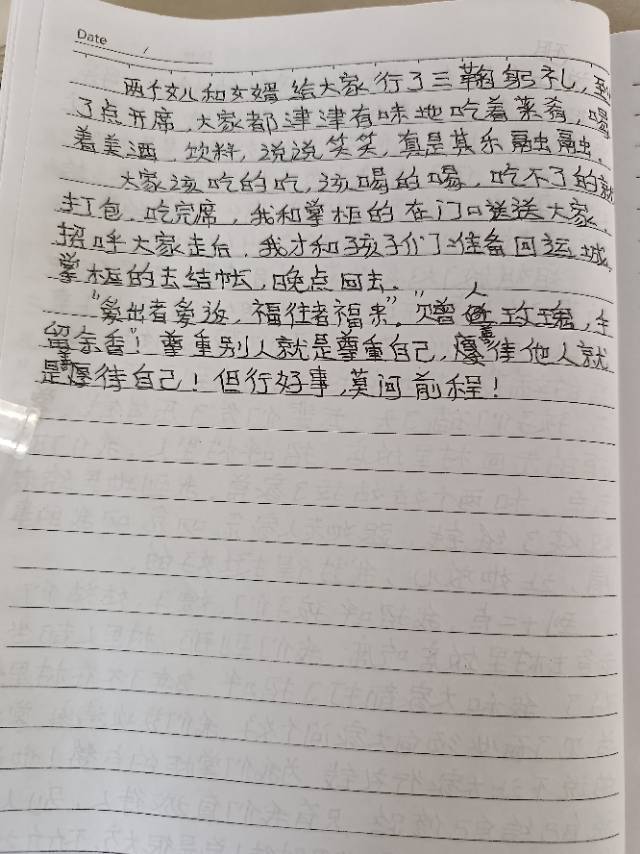 Date /
两个女儿和女婿给大家行了三鞠躬礼,到
了点开席,大家都津津有味地吃着菜肴,喝
着美酒、饮料,说说笑笑,真是其乐融融。
大家该吃的吃,该喝的喝,吃不了的就
打包。吃完席,我和掌柜的在门口送送大家。
招呼大家走后,我才和孩子们准备回运城,
掌柜的去结帐,晚点回去。
“爱出者爱返,福往者福来”。“赠人玫瑰,手
留余香”!尊重别人就是尊重自己,善待他人就
是善待自己!但行好事,莫问前程!